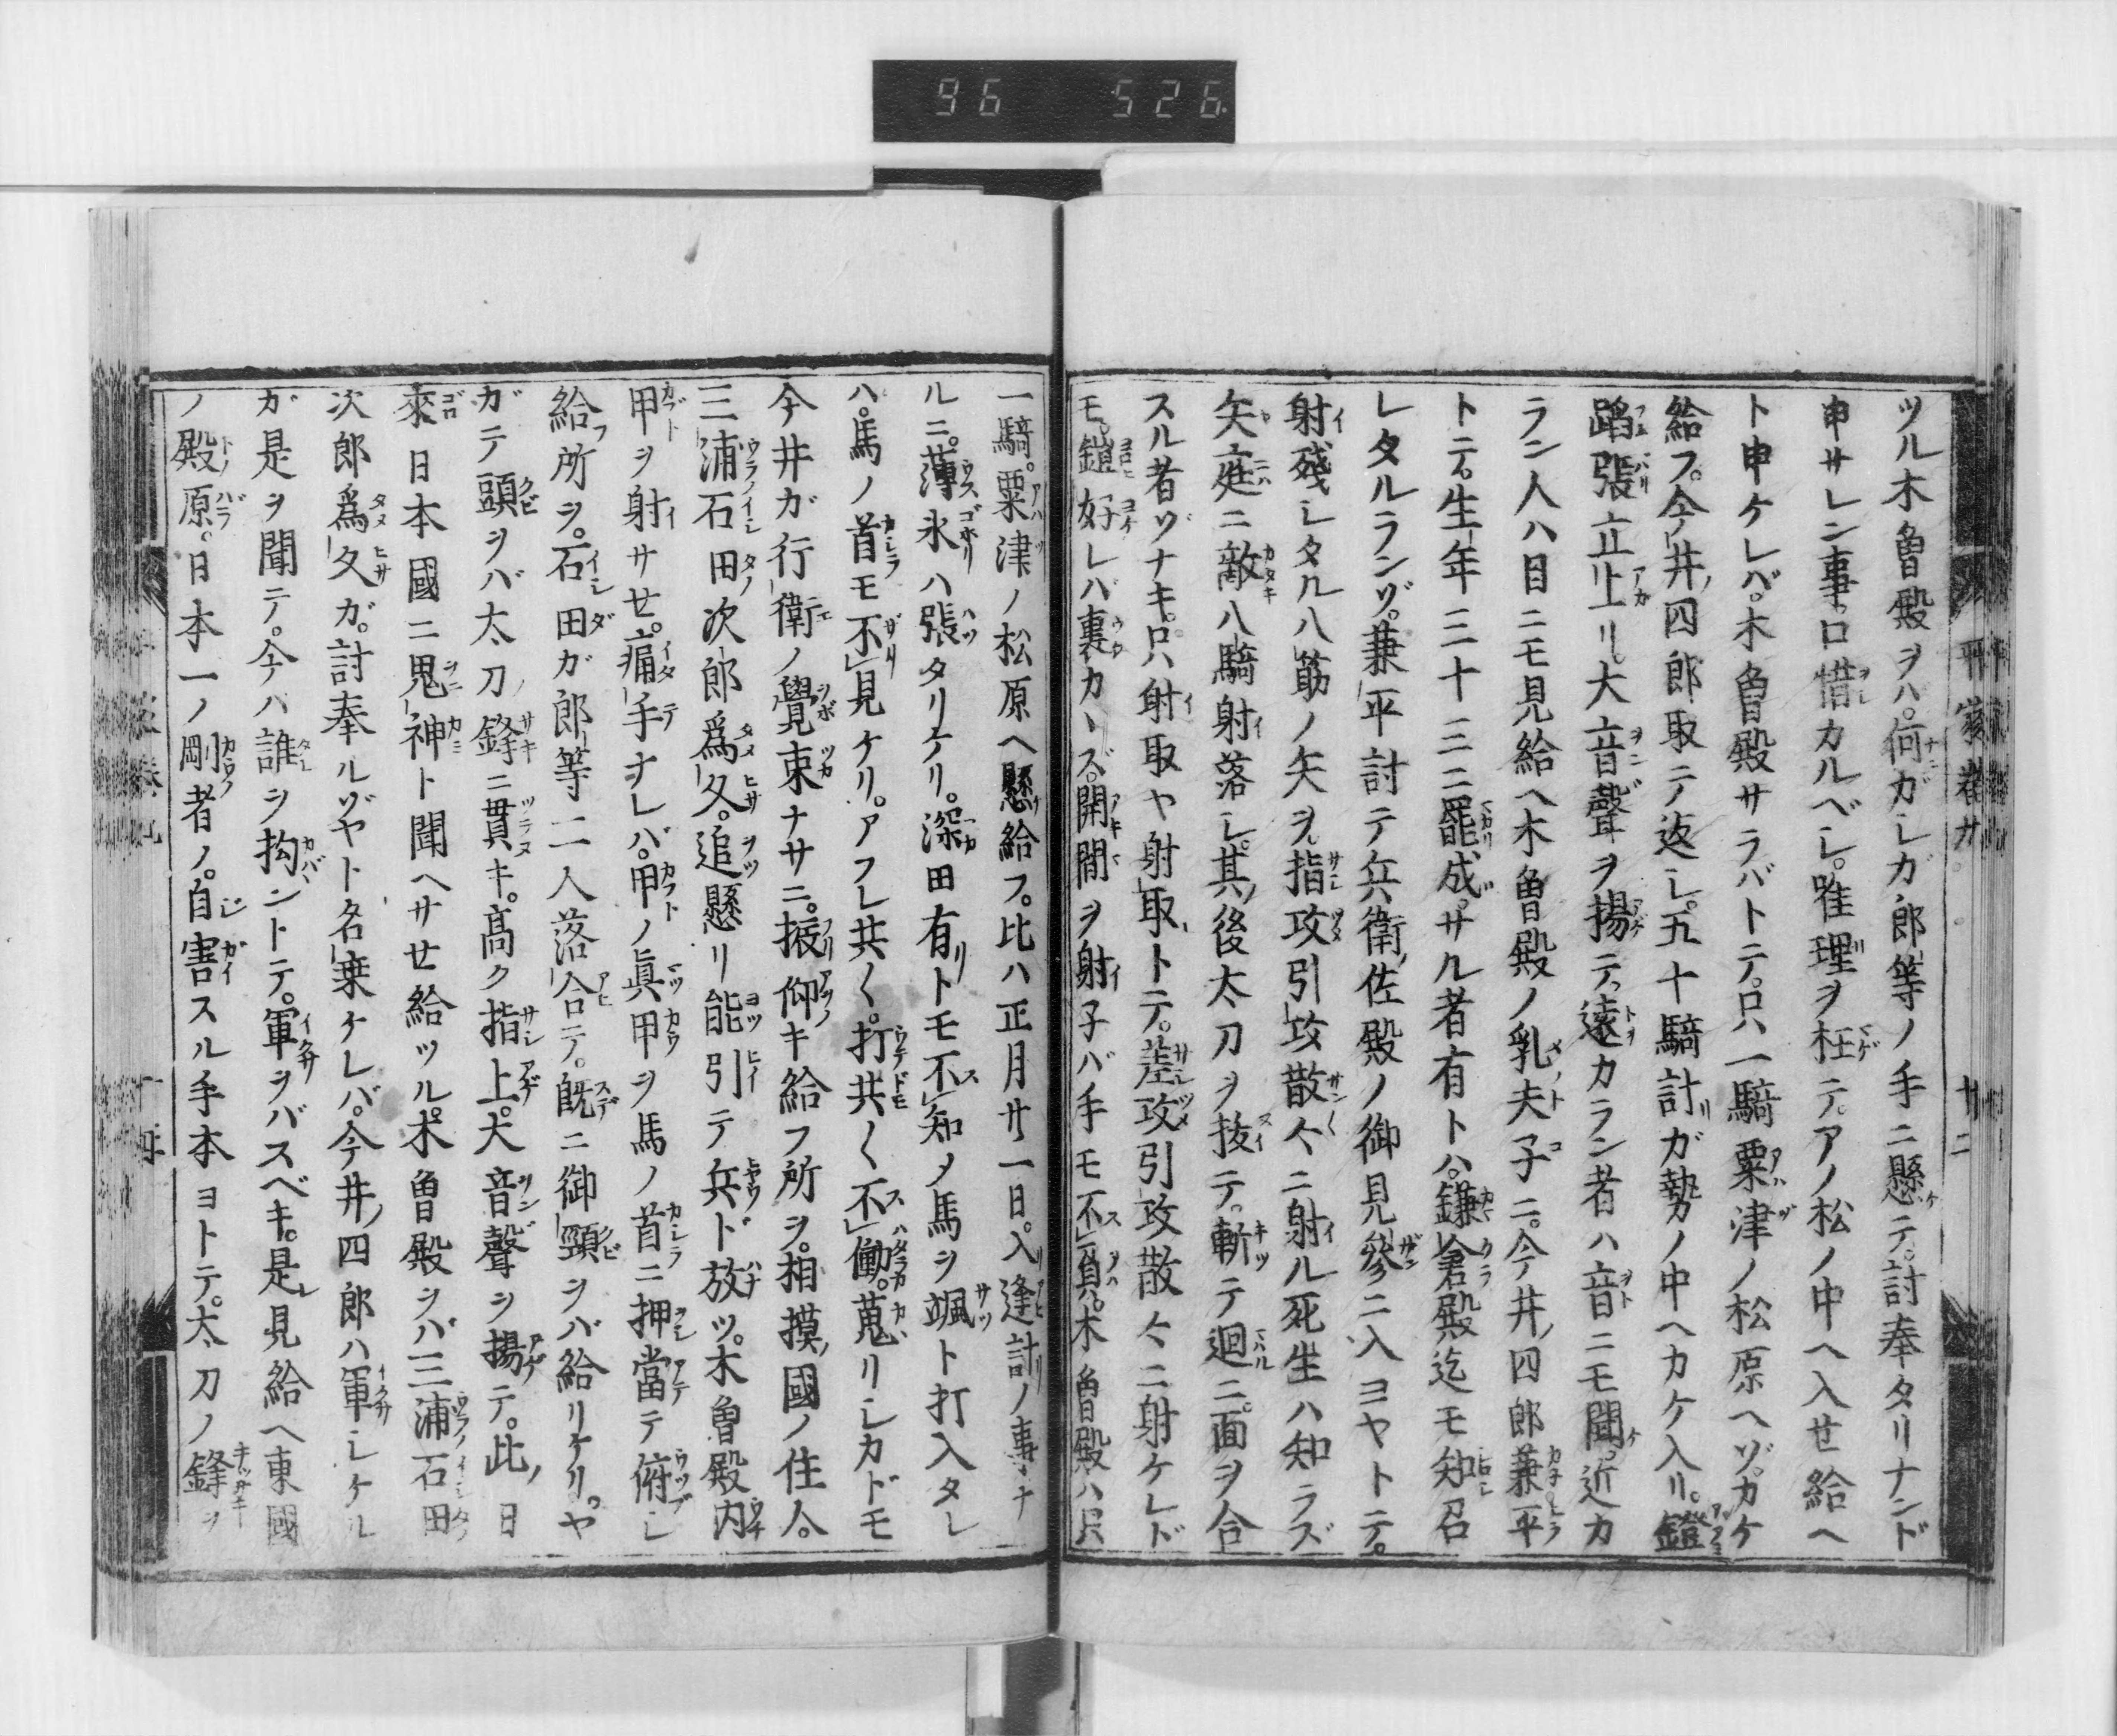 96 526
平家卷九 廿二
ツル木曽殿ヲハ。何ガシガ郎等ノ手ニ懸テ。討奉タリナンド
申サレン事。口惜カルベシ。唯理ヲ枉テ。アノ松ノ中ヘ入せ給ヘ
ト申ケレバ。木曽殿サラバトテ。只一騎粟津ノ松原ヘゾカケ
給フ。今井ノ四郎取テ返シ。五十騎計ガ勢ノ中ヘカケ入リ。鐙
蹈張立上リ。大音聲ヲ揚テ。遠カラン者ハ音ニモ聞。近カ
ラン人ハ目ニモ見給ヘ木曽殿ノ乳夫子ニ。今井ノ四郎兼平
トテ。生年三十三ニ罷成。サル者有トハ。鎌倉殿迄モ知召
レタルランゾ。兼平討テ兵衛佐殿ノ御見參ニ入ヨヤトテ。
射殘シタル八筋ノ矢ヲ。指攻引攻散々ニ射ル死生ハ知ラズ
矢庭ニ敵八騎射落シ。其後太刀ヲ抜テ。斬テ迴ニ。面ヲ合
スル者ゾナキ。只射取ヤ射取トテ。差攻引攻散々ニ射ケレド
モ。鎧好レバ裏カヽズ。開間ヲ射子バ手モ不負。木曽殿ハ只
一騎。粟津ノ松原ヘ懸給フ。比ハ正月廿一日。入逢計ノ事ナ
ルニ。薄氷ハ張タリケリ。深田有トモ不知ノ馬ヲ颯ト打入タレ
ハ。馬ノ首モ不見ケリ。アフレ共〱。打共〱不働。蒐リシカドモ
今井ガ行衛ノ覺束ナサニ。振仰キ給フ所ヲ。相摸國ノ住人。
三浦石田次郎爲久。追懸リ能引テ兵ド放ツ。木曽殿内
甲ヲ射サせ。痛手ナレバ。甲ノ眞甲ヲ馬ノ首ニ押當テ俯シ
給フ所ヲ。石田ガ郎等二人落合テ。既ニ御頸ヲバ給リケリ。ヤ
ガテ頭ヲバ太刀ノ鋒ニ貫キ。高ク指上。大音聲ヲ揚テ。此ノ日
來日本國ニ鬼神ト聞ヘサせ給ツル。木曽殿ヲバ三浦石田
次郎爲久ガ。討奉ルゾヤト名乗ケレバ。今井ノ四郎ハ軍シケル
ガ是ヲ聞テ。今ハ誰ヲ抅ントテ。軍ヲバスベキ。是見給ヘ東國
ノ殿原。日本一ノ剛者ノ。自害スル手本ヨトテ。太刀ノ鋒ヲ